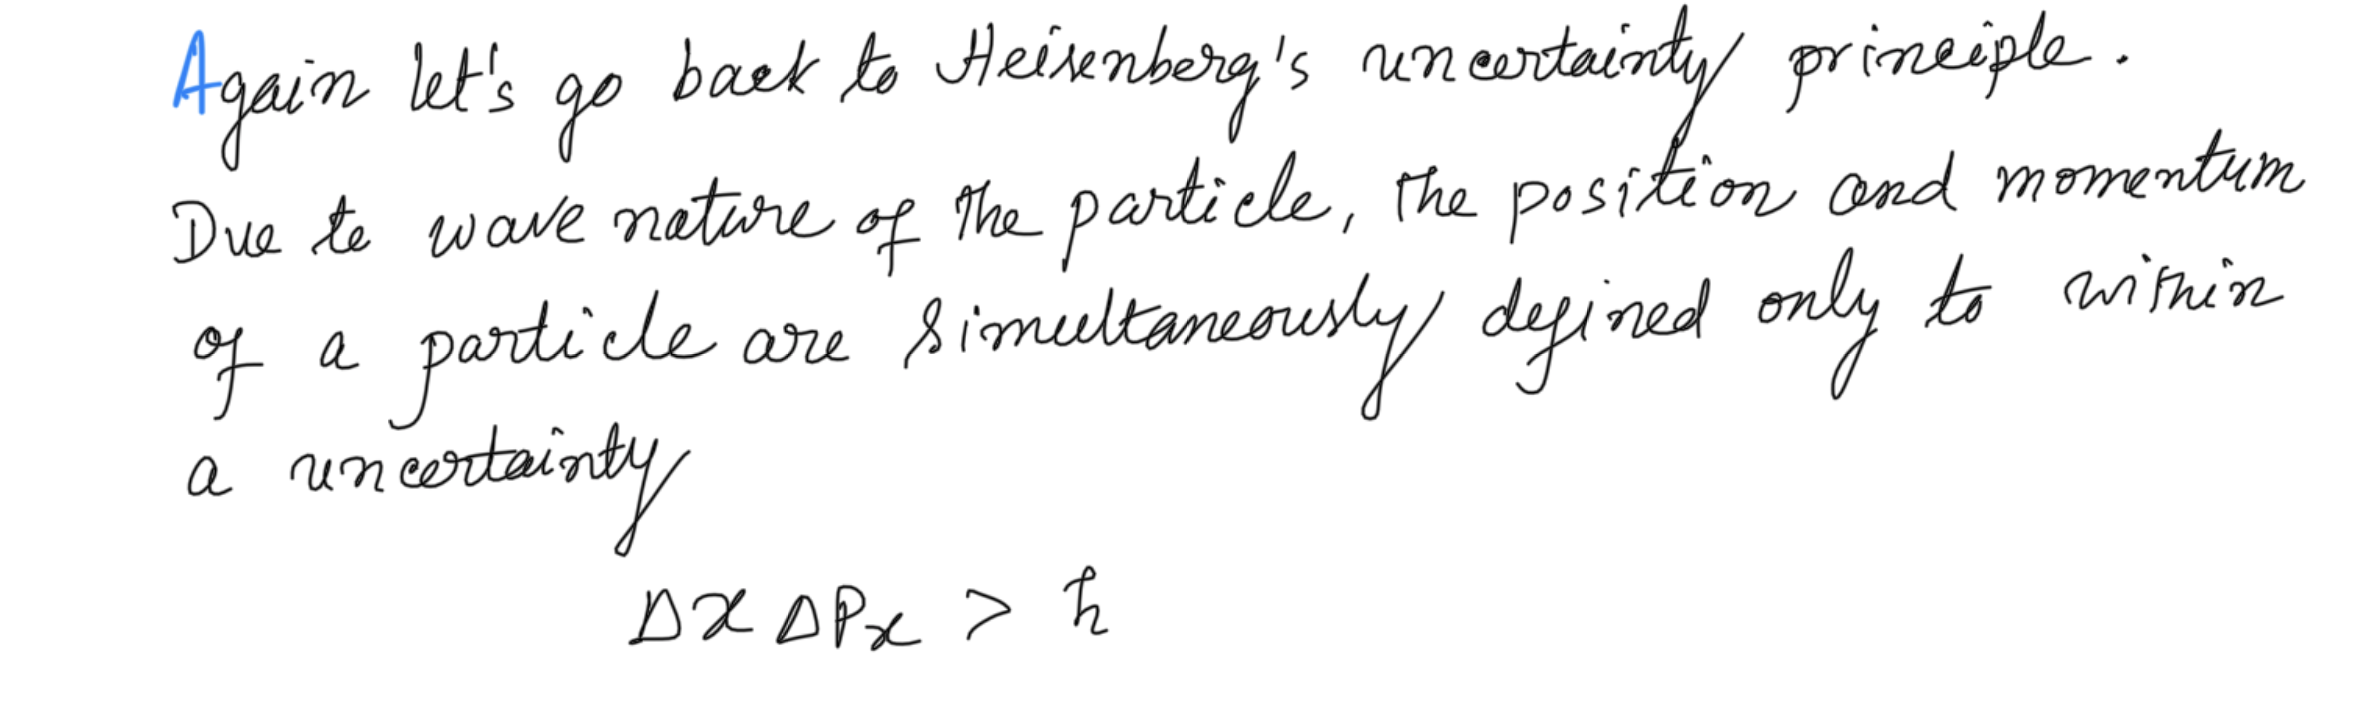 Again let's go back to Heisenberg's uncertainty principle.
Due to wave nature of the particle, the position and momentum
of a particle are simultaneously defined only to within
a uncertainty
Δx ΔPx > ħ